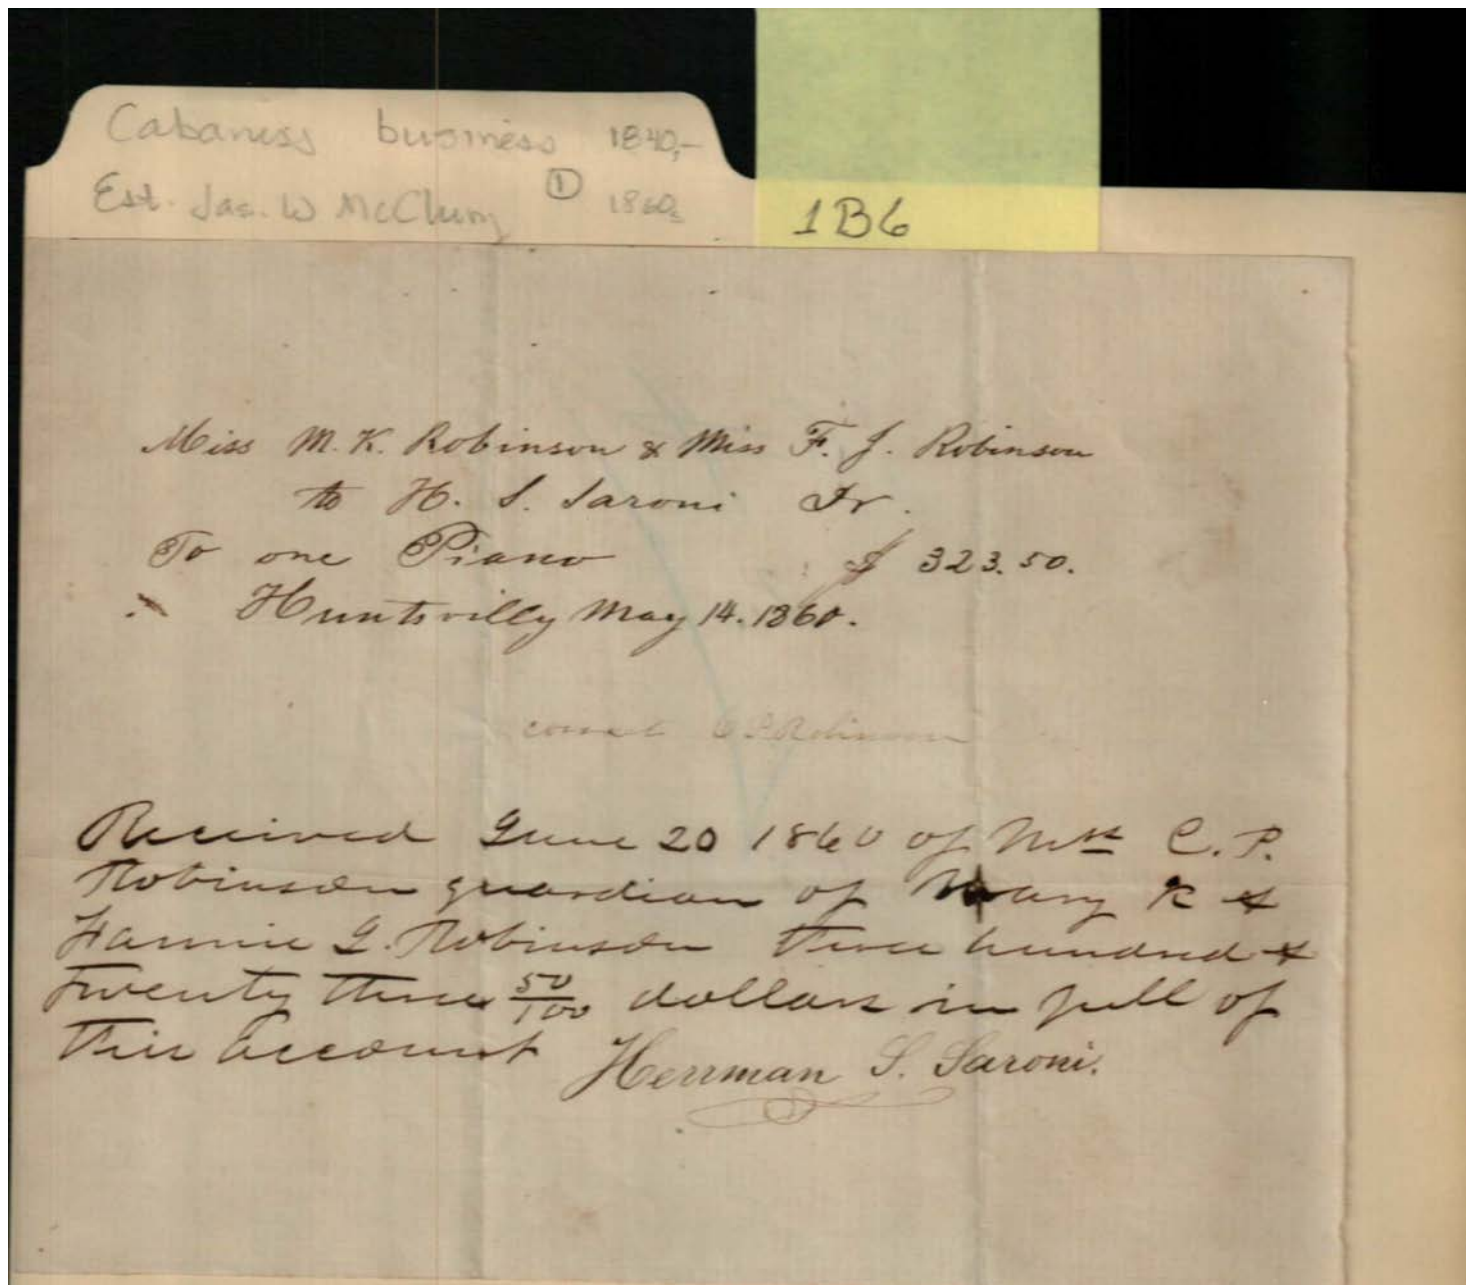 Cabaniss business 1840,-
Est. Jas. W McClung ① 1860s
1B6
Miss M. K. Robinson & Miss F. J. Robinson
to H. S. Saroni Dr.
To one Piano $ 323.50.
Huntsville May 14. 1860.
correct C P Robinson
Received June 20 1860 of Mrs C. P.
Robinson guardian of Mary K &
Fannie J. Robinson three hundred &
twenty three 50/100 dollars in full of
this account
Herrman S. Saroni.